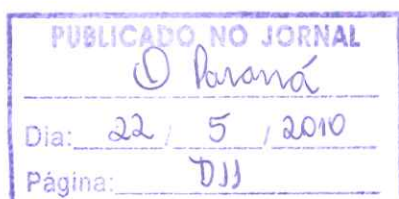 PUBLICADO NO JORNAL
O Paraná
Dia: 22 / 5 / 2010
Página: D11